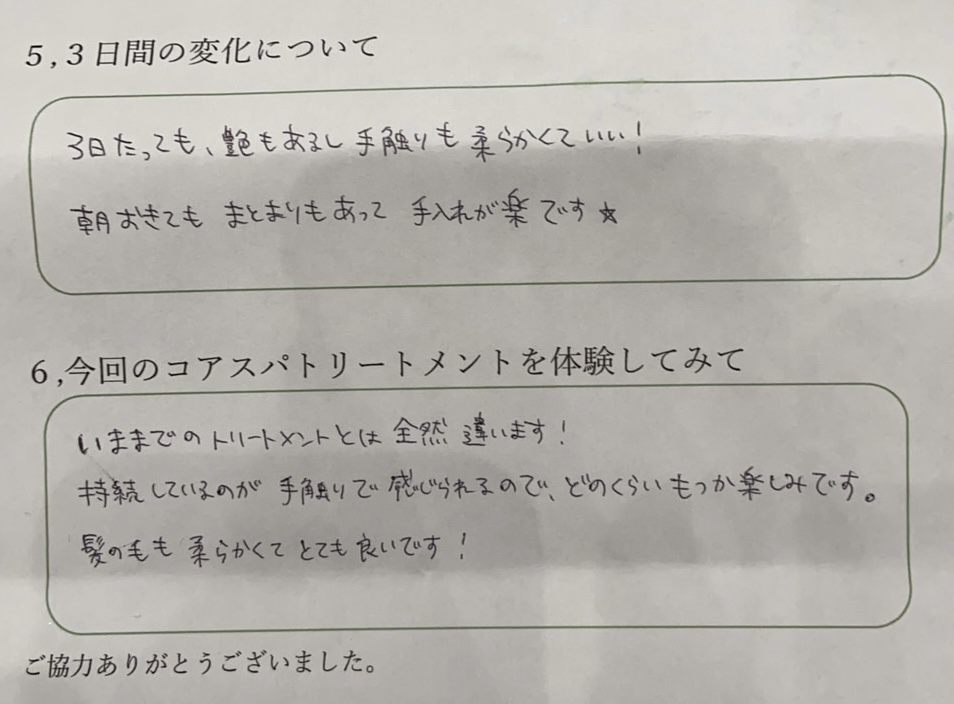 5,3日間の変化について
3日たっても、艶もあるし手触りも柔らかくていい！
朝おきても まとまりもあって 手入れが楽です☆
6,今回のコアスパトリートメントを体験してみて
いままでのトリートメントとは全然違います！
持続しているのが 手触りで感じられるので、どのくらいもつか楽しみです。
髪の毛も柔らかくてとても良いです！
ご協力ありがとうございました。